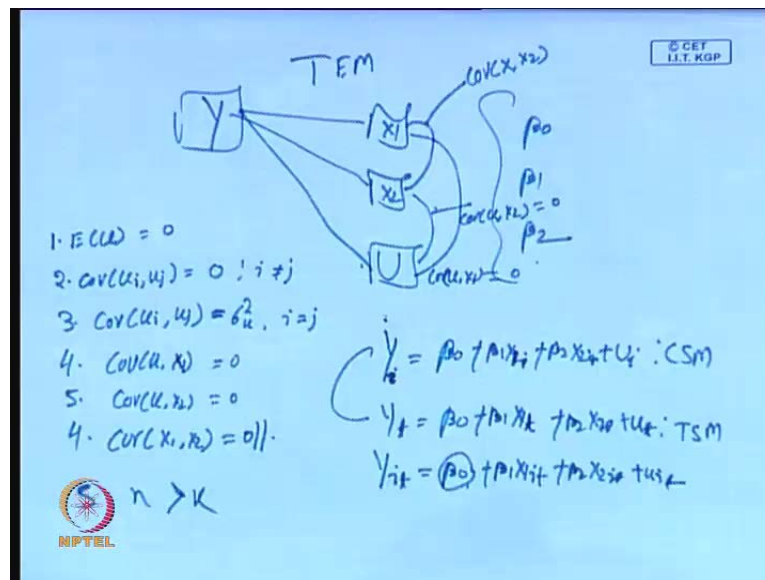 TEM
© CET
I.I.T. KGP
Y
X1
X2
U
Cov(X1, X2)
Cov(U, X2) = 0
Cov(U, X1) = 0
β0
β1
β2
1. E(U) = 0
2. Cov(Ui, Uj) = 0 ; i ≠ j
3. Cov(Ui, Uj) = б²u, i = j
4. Cov(U, X1) = 0
5. Cov(U, X2) = 0
4. Cov(X1, X2) = 0||.
n > K
Yi = β0 + β1X1i + β2X2i + Ui : CSM
Yt = β0 + β1X1t + β2X2t + Ut : TSM
Yit = β0 + β1X1it + β2X2it + Uit
NPTEL